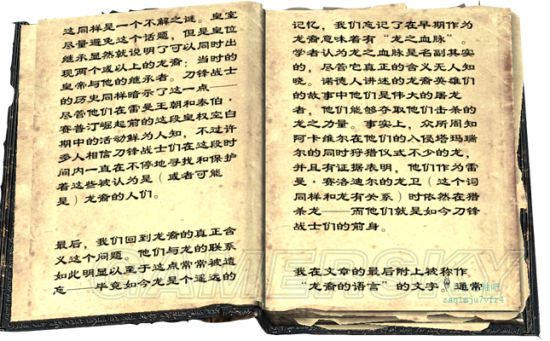 这同样是一个不解之谜。皇室
尽量避免这个话题，但是皇位
继承显然就说明了可以同时出
现两个或以上的龙裔：当时的
皇帝与他的继承者。刀锋战士
的历史同样暗示了这一点——
尽管他们在雷曼王朝和泰伯·
赛普汀崛起前的这段皇权空白
期中的活动鲜为人知，不过许
多人相信刀锋战士们在这段时
间内一直在不停地寻找和保护
着这些被认为是（或者可能
是）龙裔的人们。
最后，我们回到龙裔的真正含
义这个问题。他们与龙的联系
如此明显以至于这点常常被遗
忘——毕竟如今龙是个遥远的
记忆，我们忘记了在早期作为
龙裔意味着有“龙之血脉”
学者认为龙之血脉是名副其实
的，尽管它真正的含义无人知
晓。诺德人讲述的龙裔英雄们
的故事中他们是伟大的屠龙
者，他们能够夺取他们击杀的
龙之力量。事实上，众所周知
阿卡维尔在他们的入侵塔玛瑞
尔的同时狩猎仪式不少的龙，
并且有证据表明，他们作为雷
曼·赛洛迪尔的龙卫（这个词
同样和龙有关系）时依然在猎
杀龙——而他们就是如今刀锋
战士们的前身。
我在文章的最后附上被称作
“龙裔的语言”的文字，通常
GAMERSKY
zaq1mju7vfr4